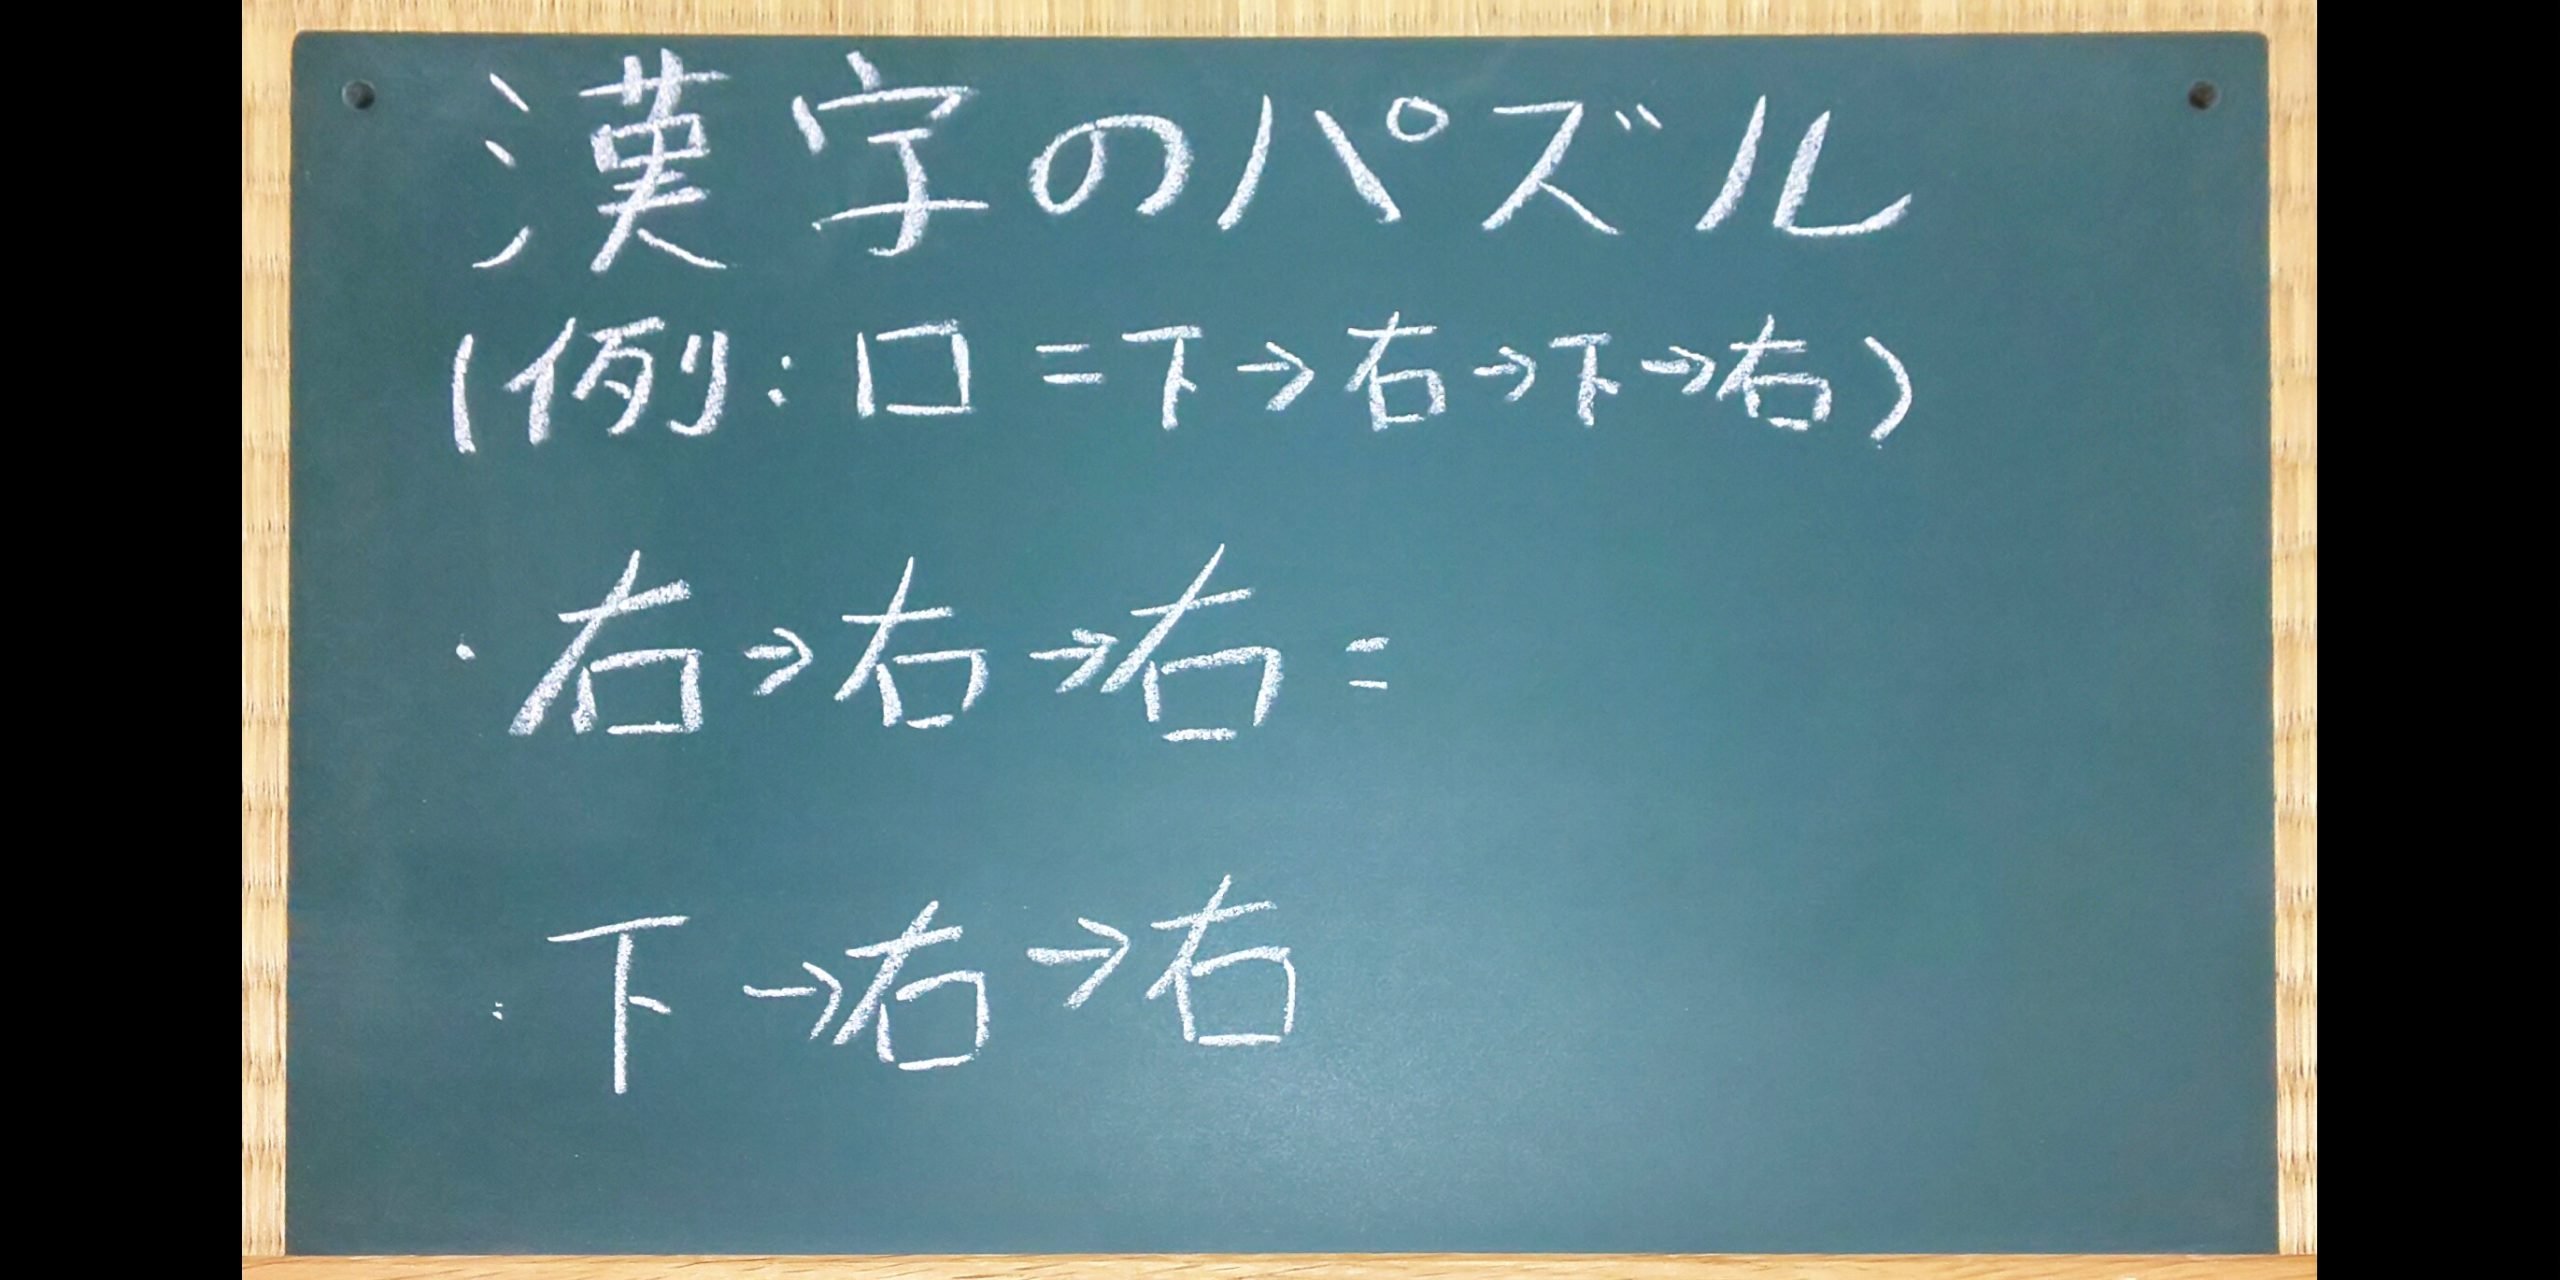 漢字のパズル
(例:口=下→右→下→右)
・右→右→右=
・下→右→右